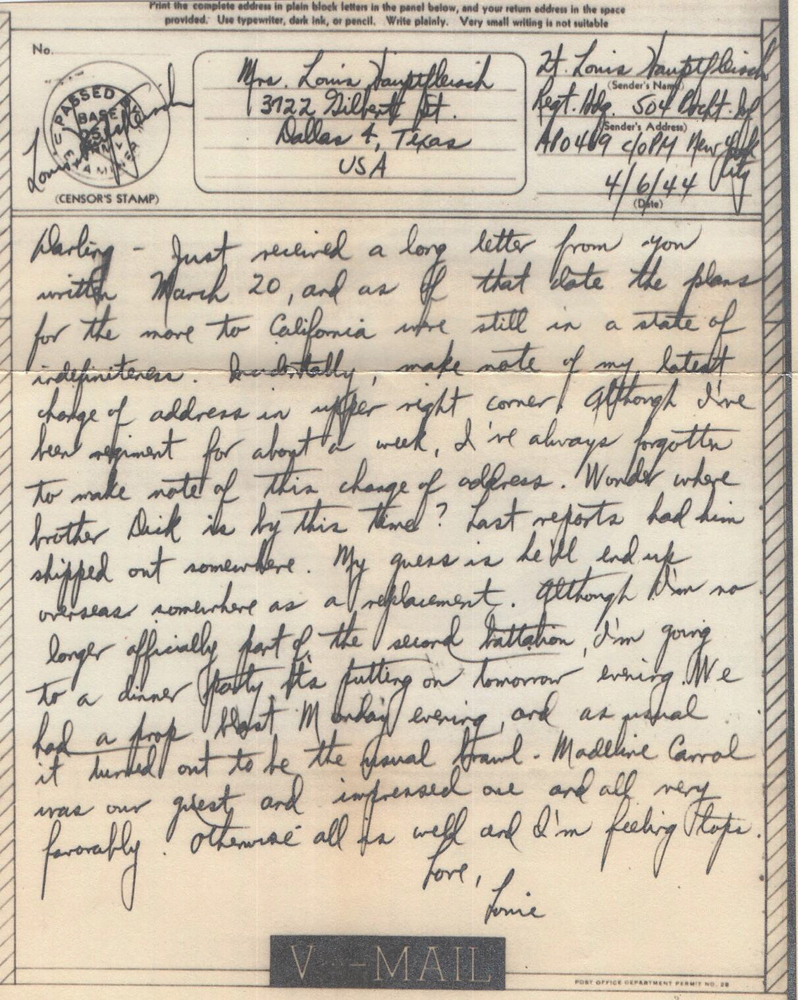 Print the complete address in plain block letters in the panel below, and your return address in the space
provided. Use typewriter, dark ink, or pencil. Write plainly. Very small writing is not suitable
No.
PASSED BY
BASE
ARMY
(CENSOR'S STAMP)
Mrs. Louis Hauptfleisch
3722 Gilbert St.
Dallas 4, Texas
USA
Lt. Louis Hauptfleisch
(Sender's Name)
Regt. Hdq. 504 Prcht. Inf
(Sender's Address)
APO 469 c/o PM New York
City
4/6/44
(Date)
Darling - Just received a long letter from you
written March 20, and as of that date the plans
for the move to California were still in a state of
indefiniteness. Incidentally, make note of my latest
change of address in upper right corner. Although I've
been regiment for about a week, I've always forgotten
to make note of this change of address. Wonder where
brother Dick is by this time? Last reports had him
shipped out somewhere. My guess is he'll end up
overseas somewhere as a replacement. Although I'm no
longer officially part of the second battalion, I'm going
to a dinner party it's putting on tomorrow evening. We
had a prop blast Monday evening, and as usual
it turned out to be the usual brawl - Madeline Carrol
was our guest and impressed one and all very
favorably. Otherwise all is well and I'm feeling tops.
Love,
Louie
V···-MAIL
POST OFFICE DEPARTMENT PERMIT NO. 28